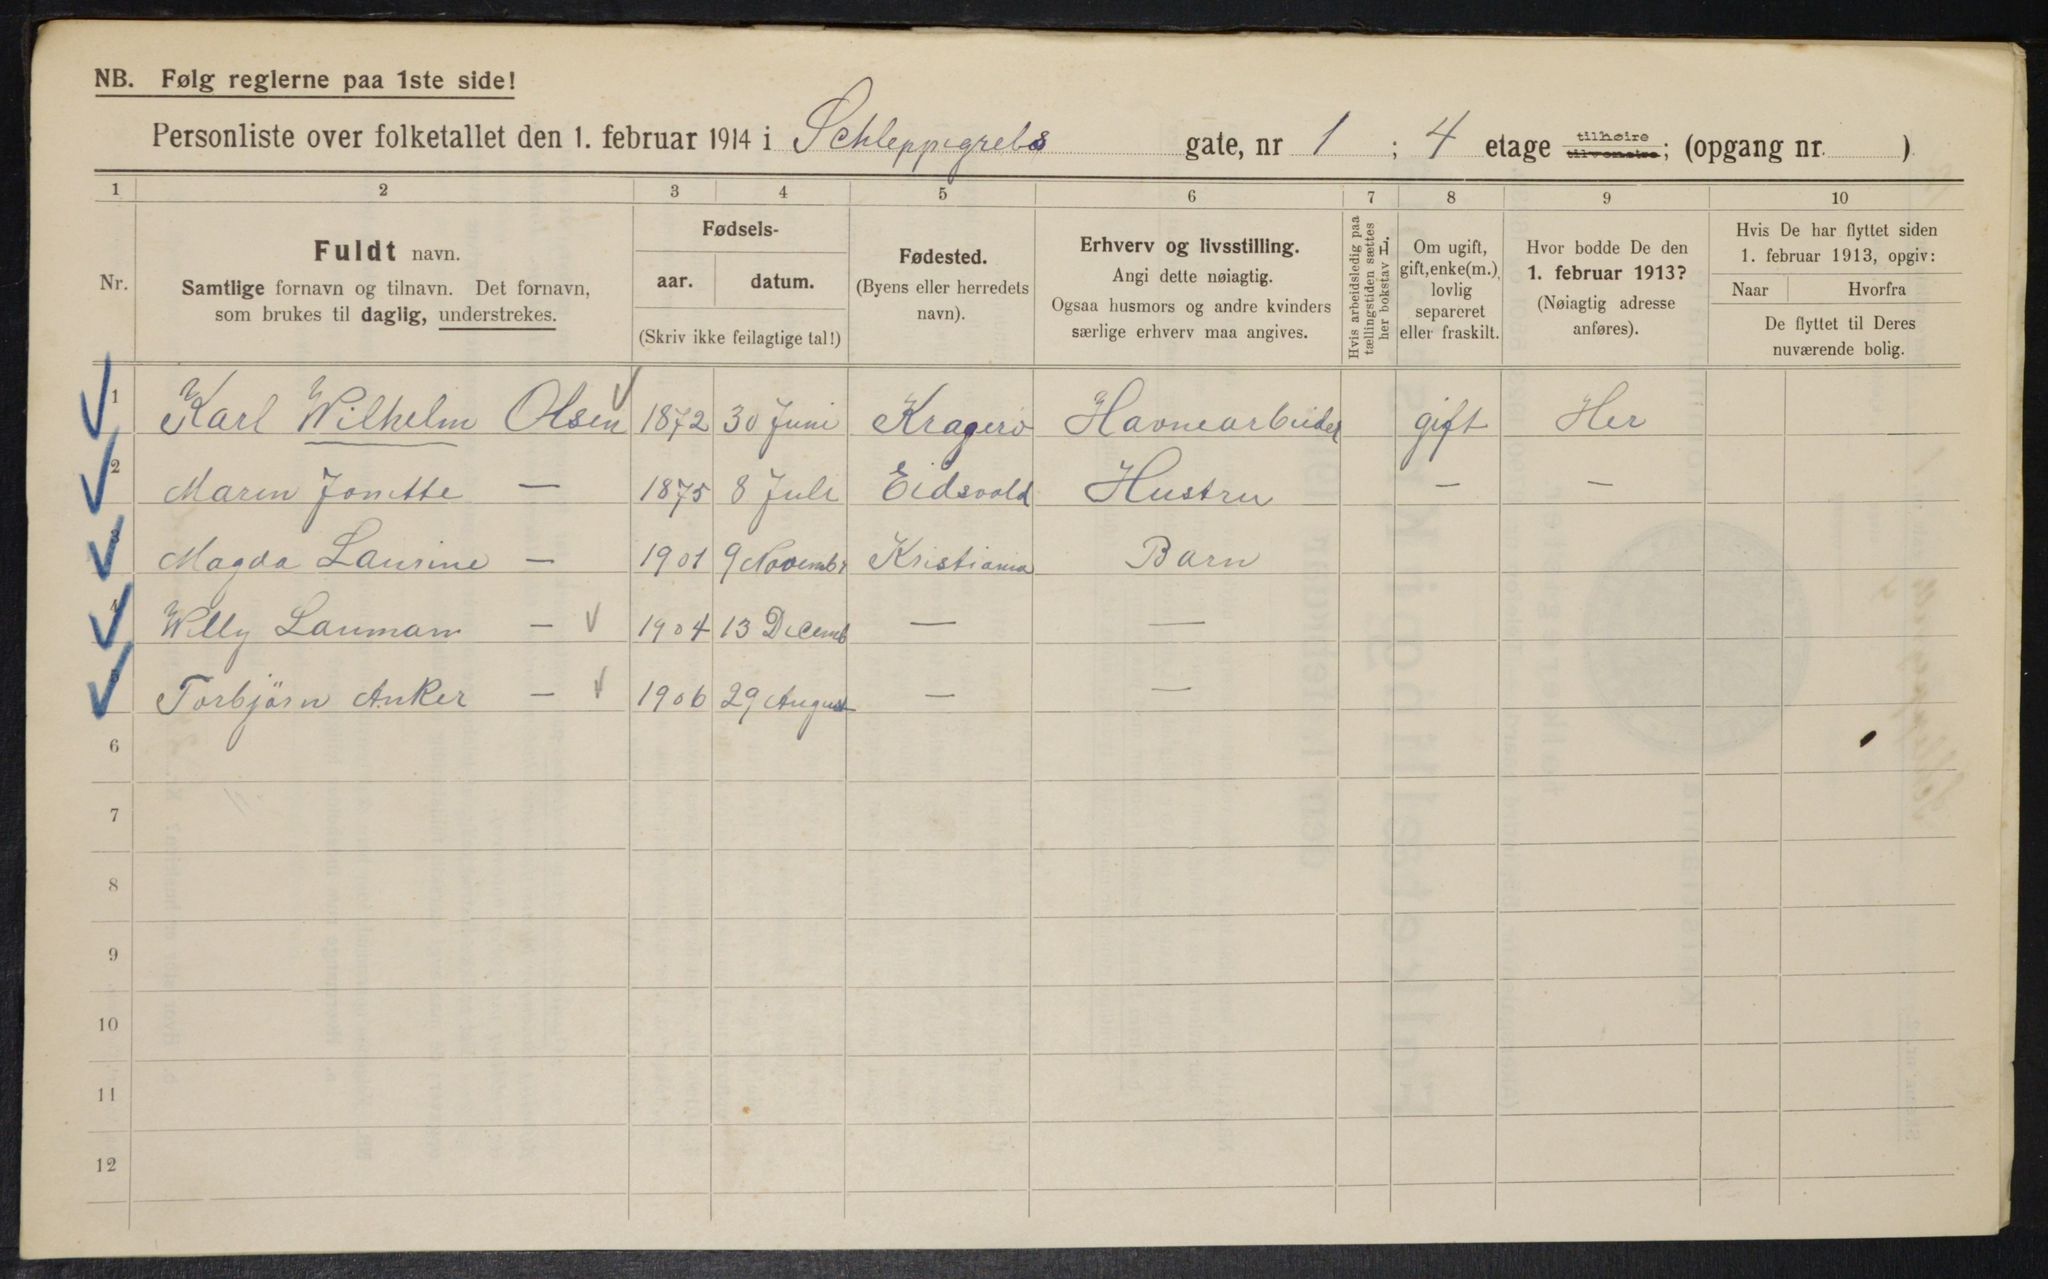 NB. Følg reglerne paa 1ste side!
Personliste over folketallet den 1. februar 1914 i Schleppegrels gate, nr 1 ; 4 etage tilhøire tilvenstre; (opgang nr. )
1 2 3 4 5 6 7 8 9 10
Nr.
Fuldt navn.
Samtlige fornavn og tilnavn. Det fornavn,
som brukes til daglig, understrekes.
Fødsels-
aar. datum.
(Skriv ikke feilagtige tal!)
Fødested.
(Byens eller herredets
navn).
Erhverv og livsstilling.
Angi dette nøiagtig.
Ogsaa husmors og andre kvinders
særlige erhverv maa angives.
Hvis arbeidsledig paa
tællingstiden sættes
her bokstav L.
Om ugift,
gift, enke(m.),
lovlig
separeret
eller fraskilt.
Hvor bodde De den
1. februar 1913?
(Nøiagtig adresse
anføres).
Hvis De har flyttet siden
1. februar 1913, opgiv:
Naar Hvorfra
De flyttet til Deres
nuværende bolig.
1 Karl Wilhelm Olsen 1872 30 Juni Kragerö Havnearbeider gift Her
2 Maren Jonette — 1875 8 Juli Eidsvold Hustru — —
3 Magda Laurine — 1901 9 Novembr Kristiania Barn
4 Willy — 1904 13 Decemb — —
5 Torbjörn Anker — 1906 29 August — —
6
7
8
9
10
11
12